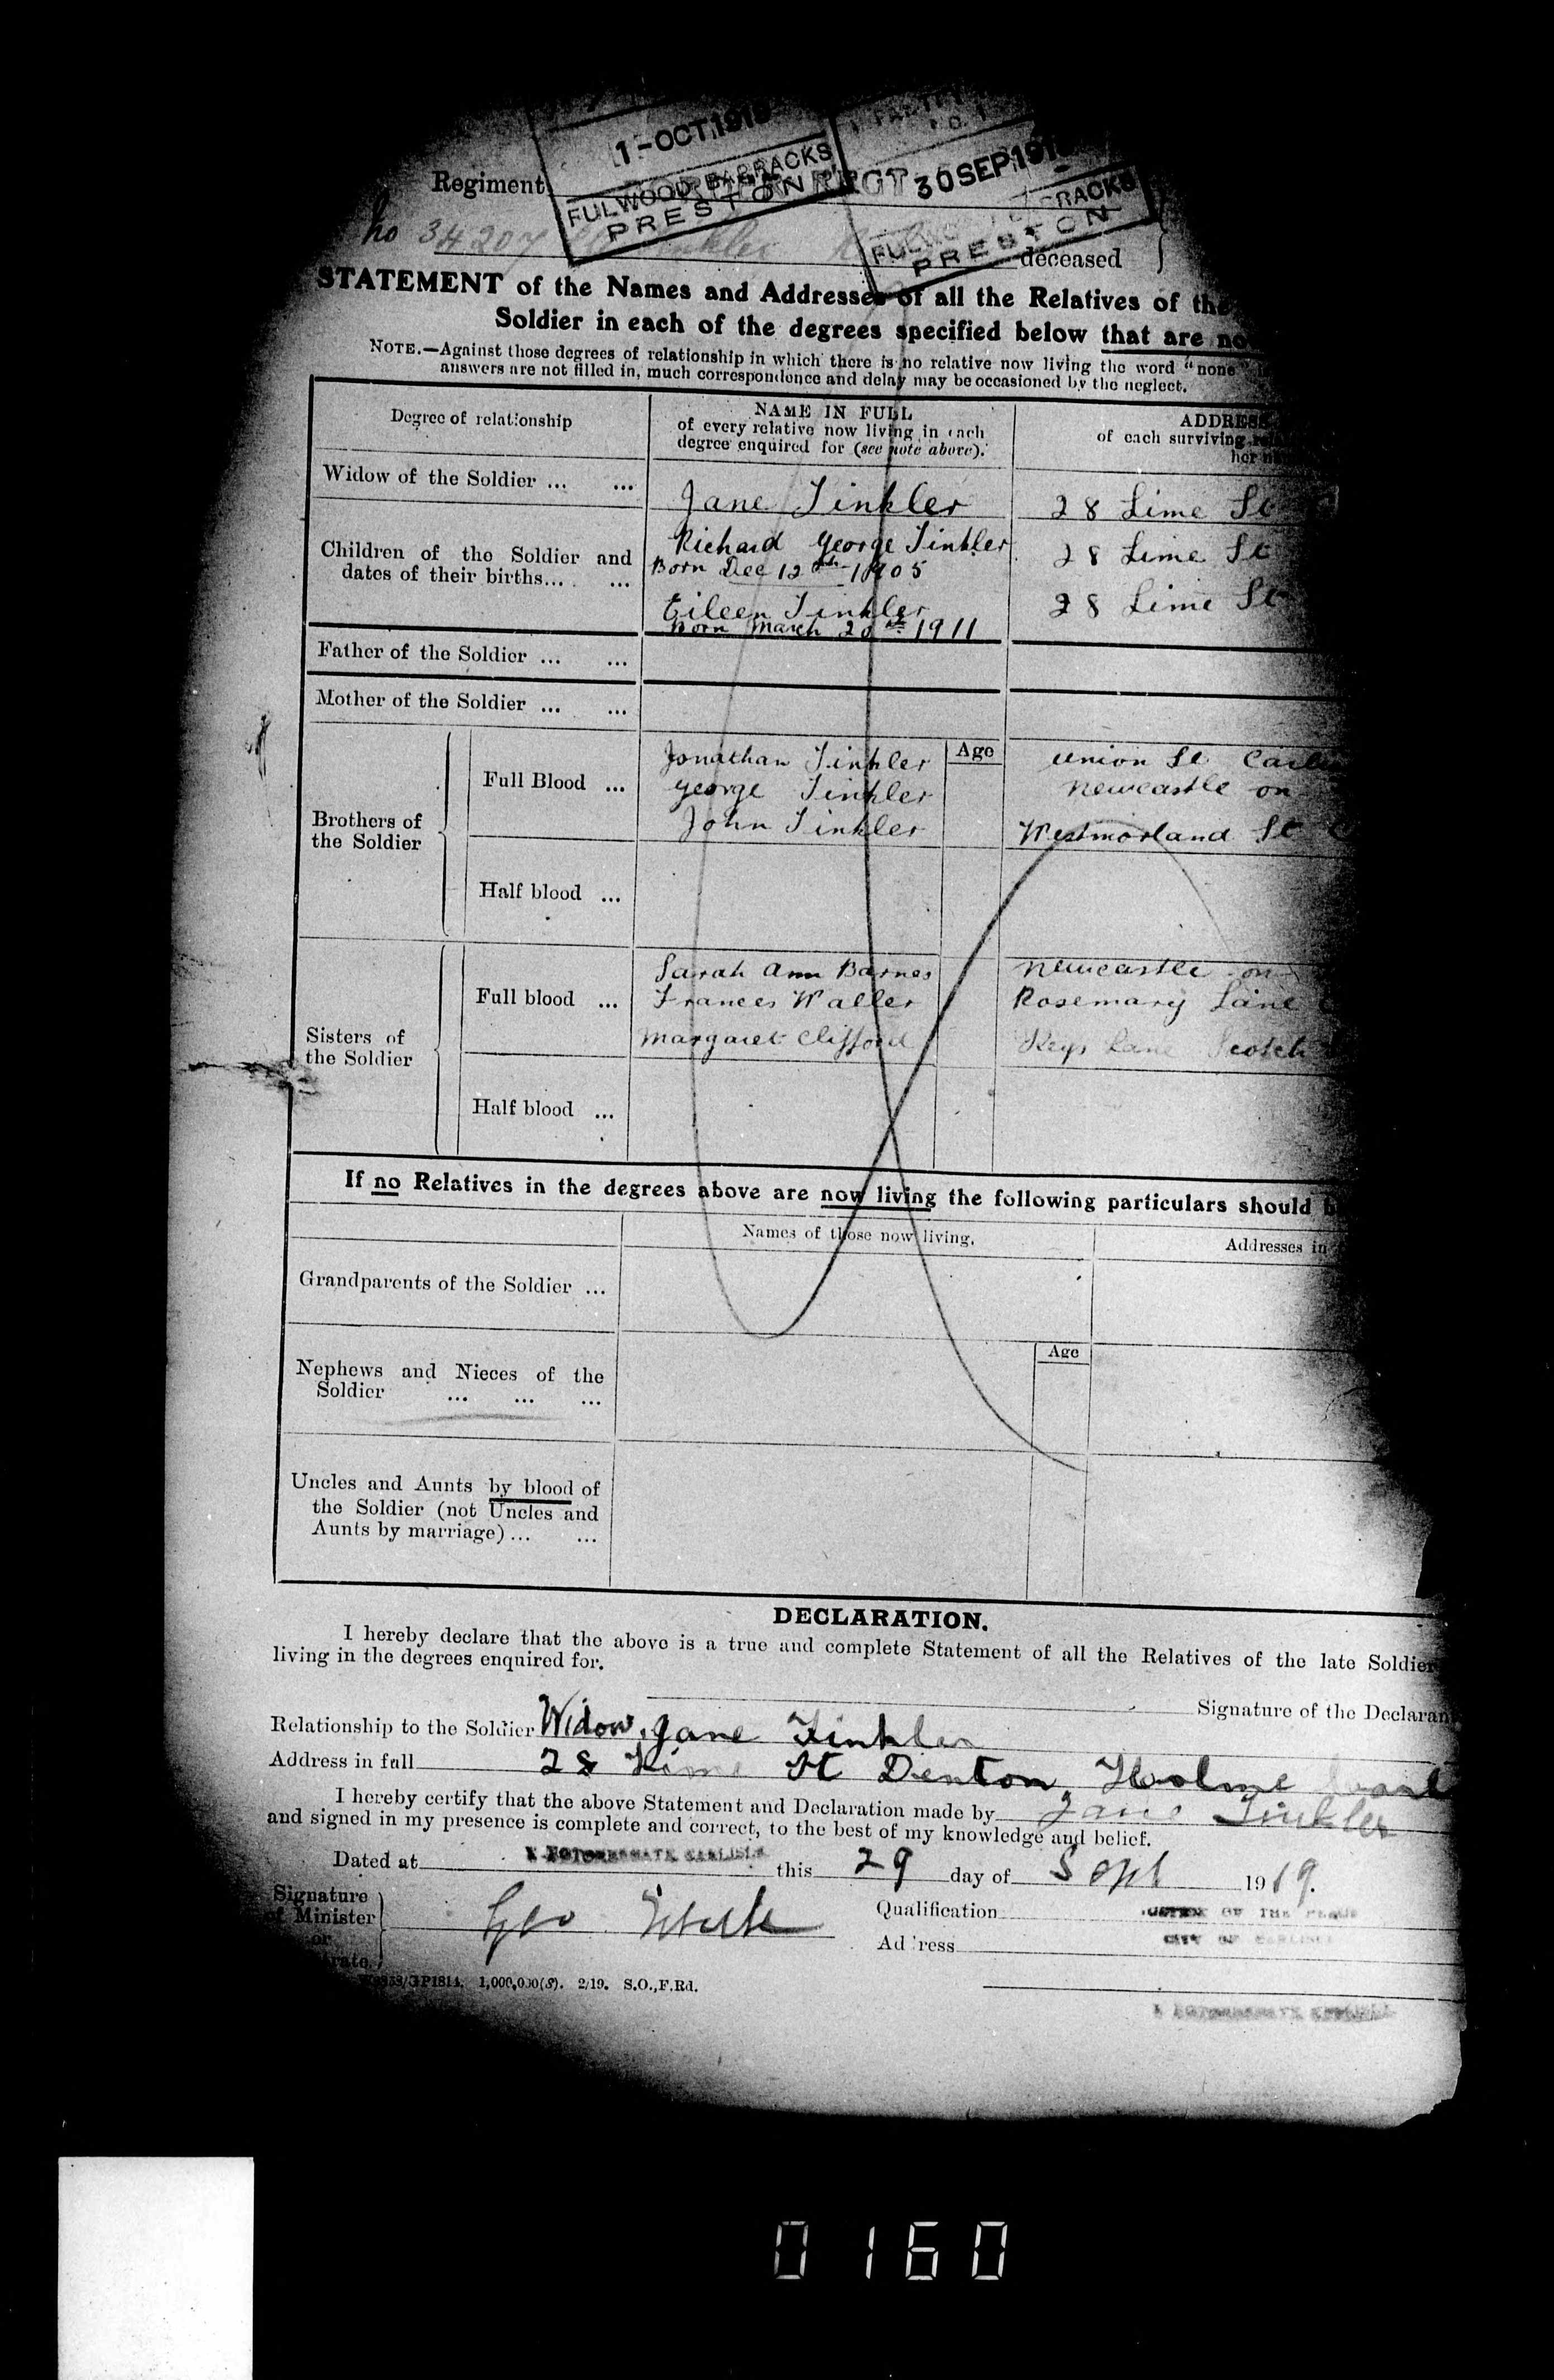 1-OCT 1919
FULWOOD BARRACKS
PRESTON
30 SEP 1919
PRESTON
Regiment
No 34207 Tinkler
deceased
STATEMENT of the Names and Addresses of all the Relatives of the
Soldier in each of the degrees specified below that are no
NOTE.—Against those degrees of relationship in which there is no relative now living the word "none"
answers are not filled in, much correspondence and delay may be occasioned by the neglect.
Degree of relationship
NAME IN FULL
of every relative now living in each
degree enquired for (see note above).
ADDRESS
of each surviving
Widow of the Soldier ... ...
Jane Tinkler
28 Lime St
Children of the Soldier and
dates of their births... ...
Richard George Tinkler
Born Dec 12th 1905
28 Lime St
Eileen Tinkler
Born March 20th 1911
28 Lime St
Father of the Soldier ... ...
Mother of the Soldier ... ...
Brothers of
the Soldier
Full Blood ...
Age
Jonathan Tinkler
Union St
George Tinkler
Newcastle on
John Tinkler
Westmorland St
Half blood ...
Sisters of
the Soldier
Full blood ...
Sarah Ann Barnes
Newcastle on
Frances Waller
Rosemary Lane
Margaret Clifford
Keys Lane Scotch
Half blood ...
If no Relatives in the degrees above are now living the following particulars should
Names of those now living.
Addresses in
Grandparents of the Soldier ...
Nephews and Nieces of the
Soldier ... ... ...
Age
Uncles and Aunts by blood of
the Soldier (not Uncles and
Aunts by marriage)... ...
DECLARATION.
I hereby declare that the above is a true and complete Statement of all the Relatives of the late Soldier
living in the degrees enquired for.
Signature of the Declarant
Relationship to the Soldier Widow, Jane Tinkler
Address in full 28 Lime St Denton Holme
I hereby certify that the above Statement and Declaration made by Jane Tinkler
and signed in my presence is complete and correct, to the best of my knowledge and belief.
Dated at CARLISLE this 29 day of Sept 1919.
Signature
of Minister
or
Geo
Qualification JUSTICE OF THE PEACE
CITY OF CARLISLE
Address
1,000,000(S). 2/19. S.O.,F.Rd.
0160